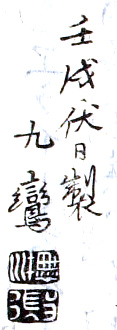 壬戌伏日製
九鸞